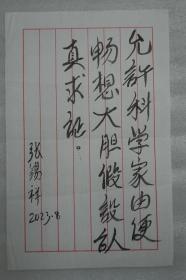 允許科学家由便
畅想大胆假設認
真求证。
张锡祥
2023.8